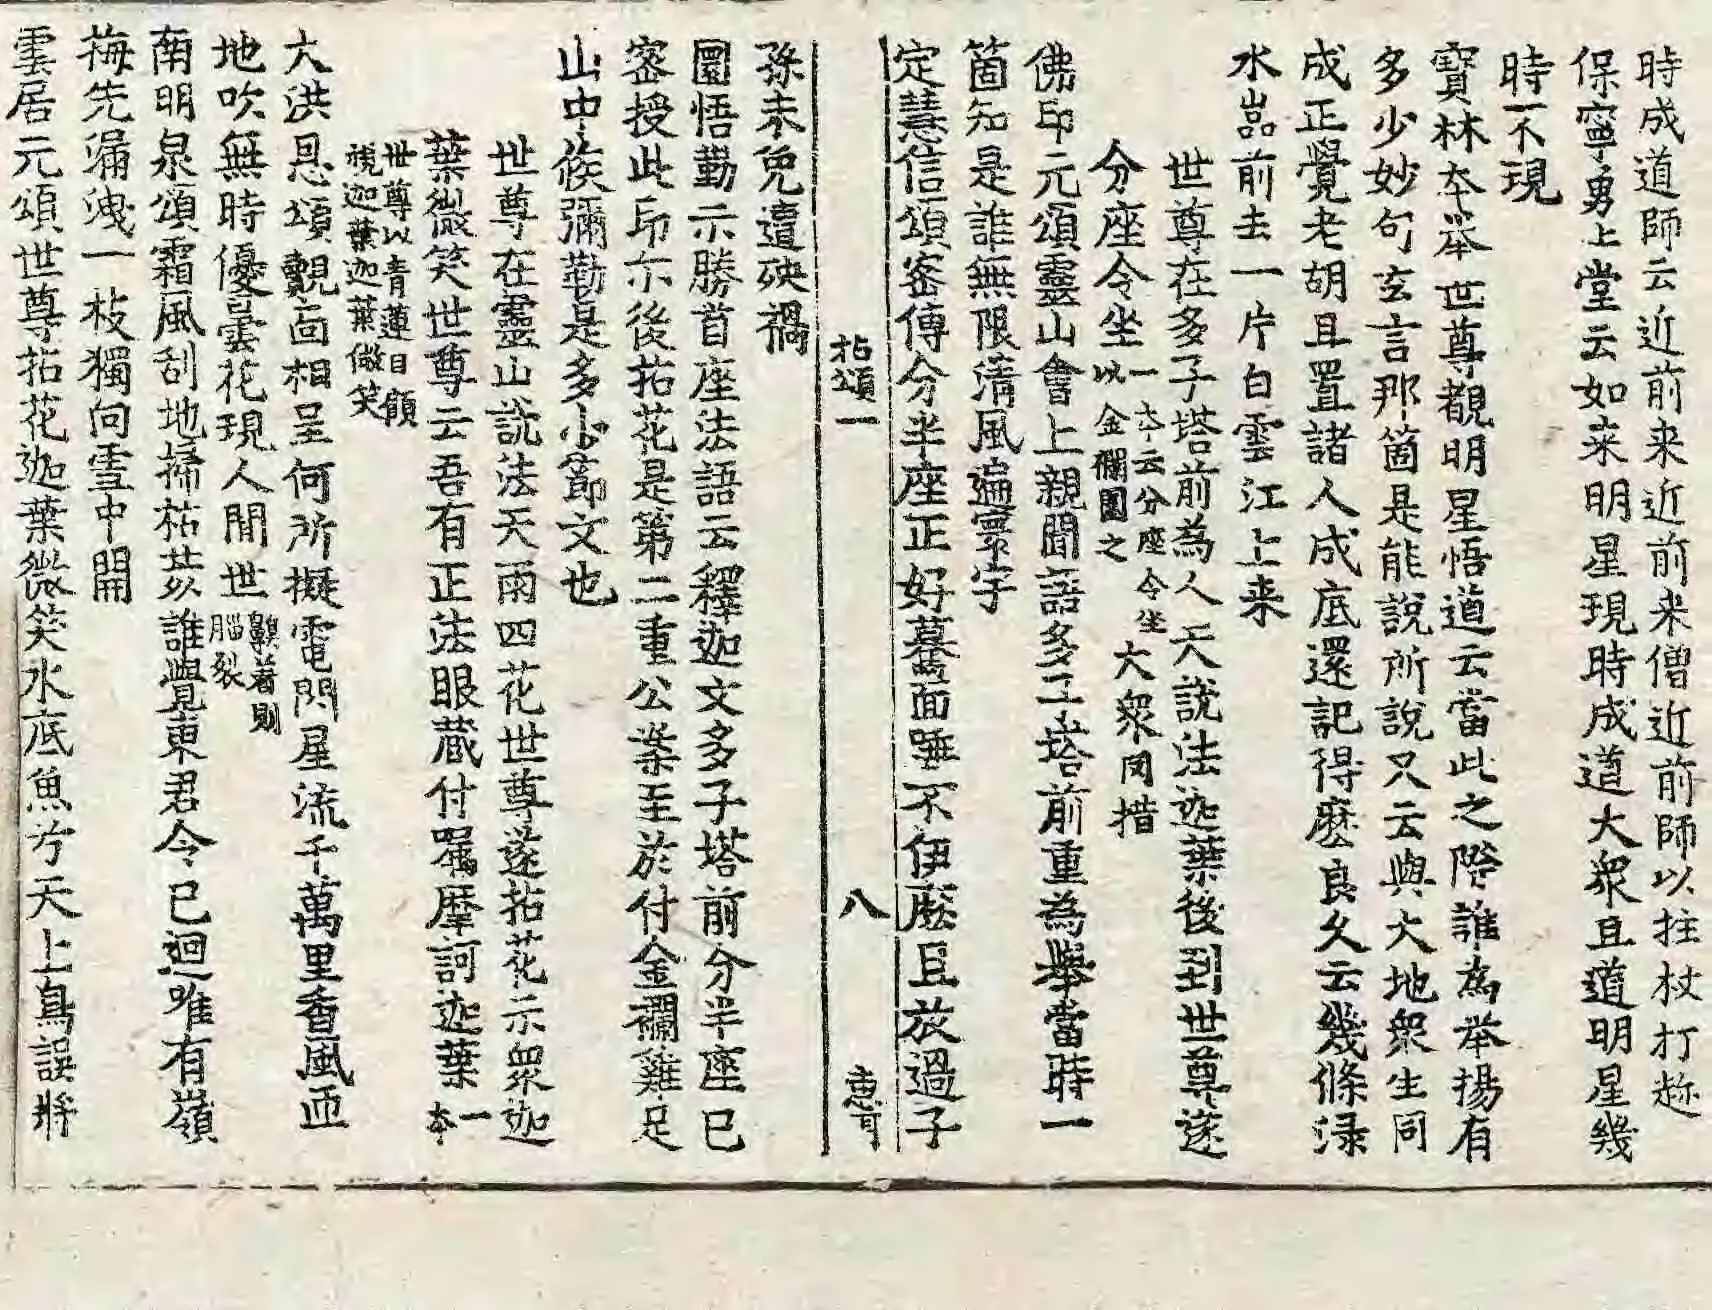 時成道師云近前来近前来僧近前師以拄杖打趂
保寧勇上堂云如来明星現時成道大衆且道明星幾
時不現
寶林本举世尊覩明星悟道云當此之際誰為举揚有
多少妙句玄言那箇是能說所說只云與大地衆生同
成正覺老胡且置諸人成底還記得麽良久云幾條渌
水嵓前去一片白雲江上来
世尊在多子塔前為人天說法迦葉後到世尊遂
分座令坐
一本云分座令坐
以金襴圍之
大衆罔措
佛印元頌靈山會上親聞語多子塔前重為舉當時一
箇知是誰無限清風遍寰宇
定慧信頌密傳分半座正好驀面唾不伊麽且放過子
拈頌一 八 惠可
孫未免遭殃禍
圜悟勤示勝首座法語云釋迦文多子塔前分半座已
密授此印尒後拈花是第二重公案至於付金襴雞足
山中候彌勒是多少節文也
世尊在靈山說法天雨四花世尊遂拈花示衆迦
葉微笑世尊云吾有正法眼蔵付囑摩訶迦葉
一本
世尊以青蓮目顧
視迦葉迦葉微笑
大洪恩頌覿面相呈何所擬電閃星流千萬里香風匝
地吹無時優曇花現人間世
齅着則
腦裂
南明泉頌霜風刮地掃枯荄誰覺東君令已迴唯有嶺
梅先漏洩一枝獨向雪中開
雲居元頌世尊拈花迦葉微笑水底魚兮天上鳥誤將